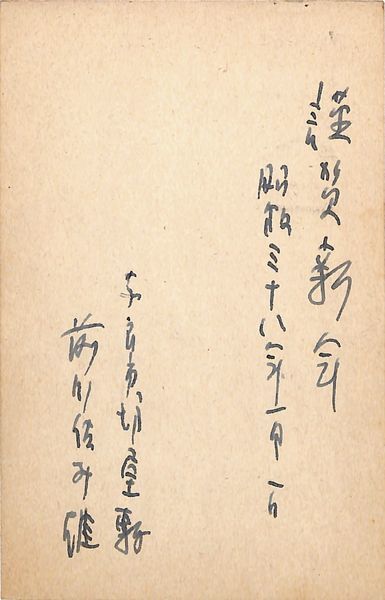 謹賀新年
昭和三十八年一月一日
奈良市坊屋敷
前川佐美雄